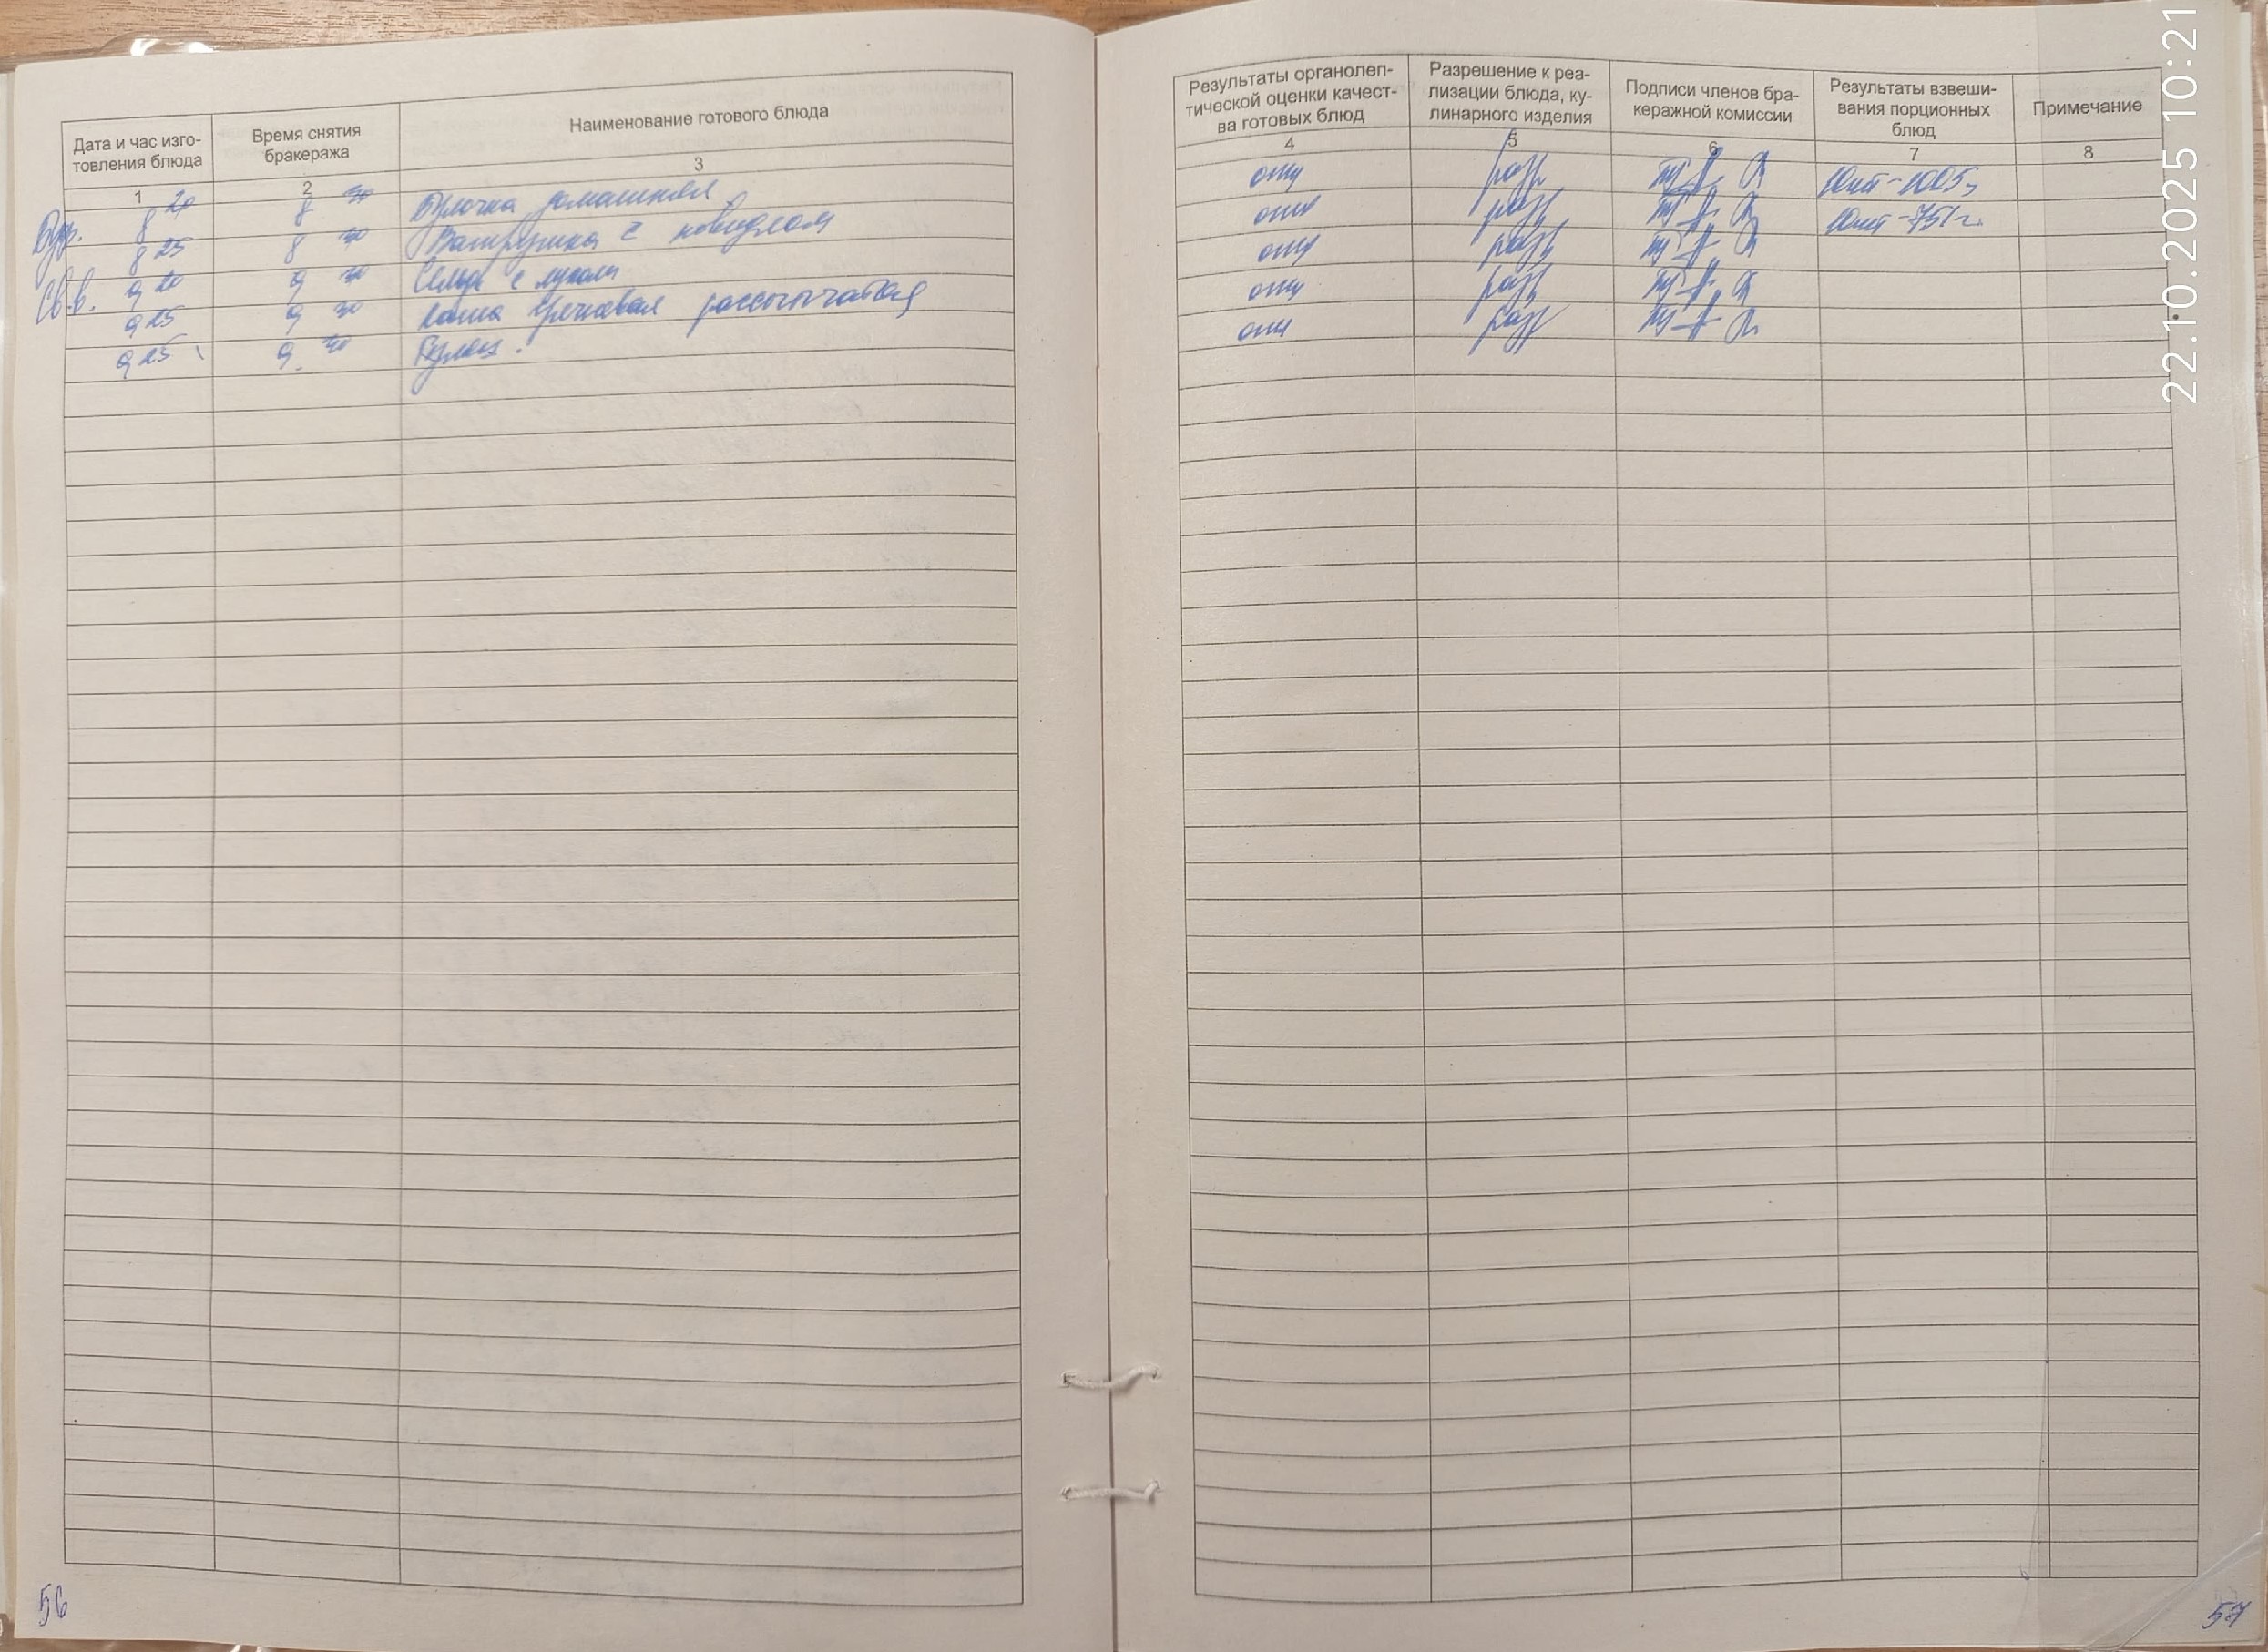 Дата и час изго-
товления блюда
Время снятия
бракеража
Наименование готового блюда
1 2 3
8 20 8 30 Булочка домашняя
8 25 8 30 Ватрушка с повидлом
9 20 9 30 Сельдь с луком
9 25 9 30 Каша гречневая рассыпчатая
9 25 9 30 Гуляш.
56
Результаты органолеп-
тической оценки качест-
ва готовых блюд
Разрешение к реа-
лизации блюда, ку-
линарного изделия
Подписи членов бра-
керажной комиссии
Результаты взвеши-
вания порционных
блюд
Примечание
4 5 6 7 8
отл разр 10шт-1005г
отл разр 10шт-751г.
отл разр
отл разр
отл разр
57
22.10.2025 10:21